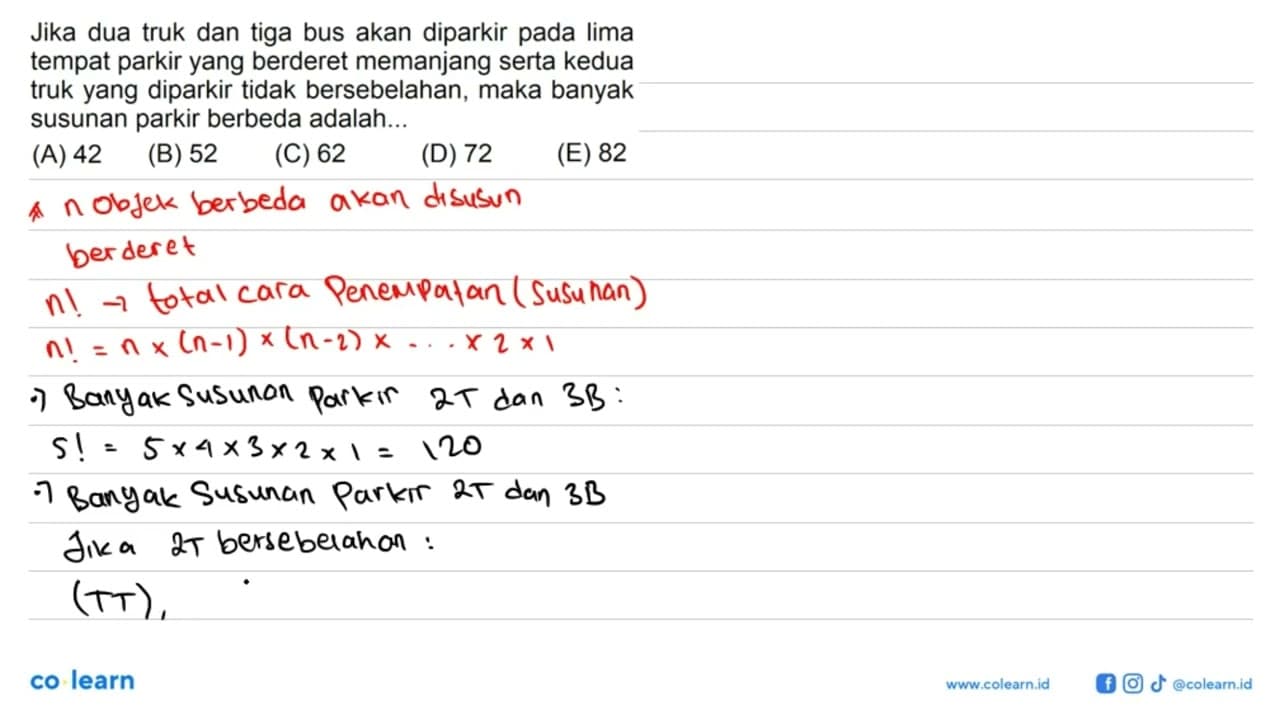 Jika dua truk dan tiga bus akan diparkir pada lima
tempat parkir yang berderet memanjang serta kedua
truk yang diparkir tidak bersebelahan, maka banyak
susunan parkir berbeda adalah...
(A) 42 (B) 52 (C) 62 (D) 72 (E) 82
* n objek berbeda akan disusun
berderet
n! → total cara Penempatan (susunan)
n! = n x (n-1) x (n-2) x ... x 2 x 1
•) Banyak Susunan Parkir 2T dan 3B :
5! = 5 x 4 x 3 x 2 x 1 = 120
•) Banyak Susunan Parkir 2T dan 3B
Jika 2T bersebelahan :
(TT),
co learn
www.colearn.id @colearn.id